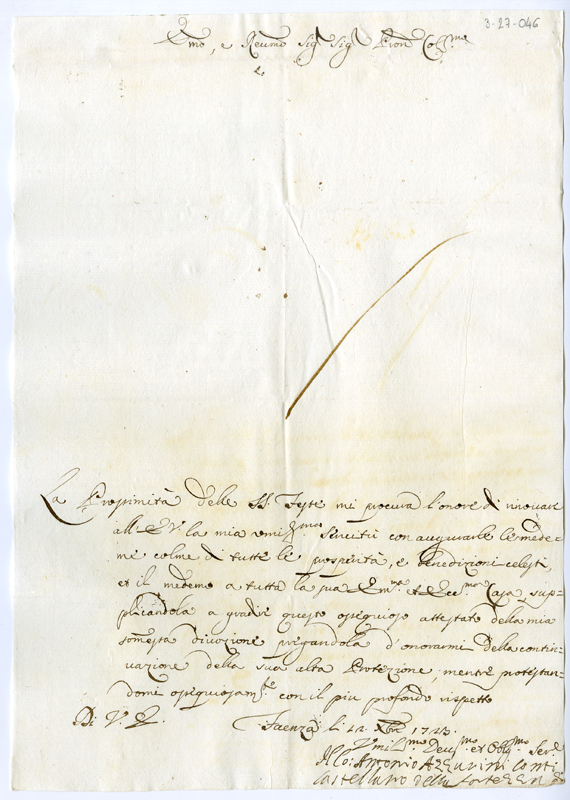 3-27-046
Emo, e Revmo Sigr Sigr Pron Colmo
La Prossimità delle SS. Feste mi procura l'onore di rinovare
all'E.V. la mia umilma servitù con augurarle le mede=
me colme di tutte le prosperità, e benedizioni celesti,
et il medemo a tutta la sua Emma et Eccma Casa, sup=
plicandola a gradire questo ossequioso attestato della mia
somessa divozione pregandola d'onorarmi della contin=
uazione della sua alta Protezione; mentre protestan=
domi ossequiosamte con il più profondo rispetto
Di V. E. Faenza li 12 Xbre 1723.
Vmilmo Devmo et Obligmo Serve
Antonio Azzurrini Conti
Castellano della Fortezza